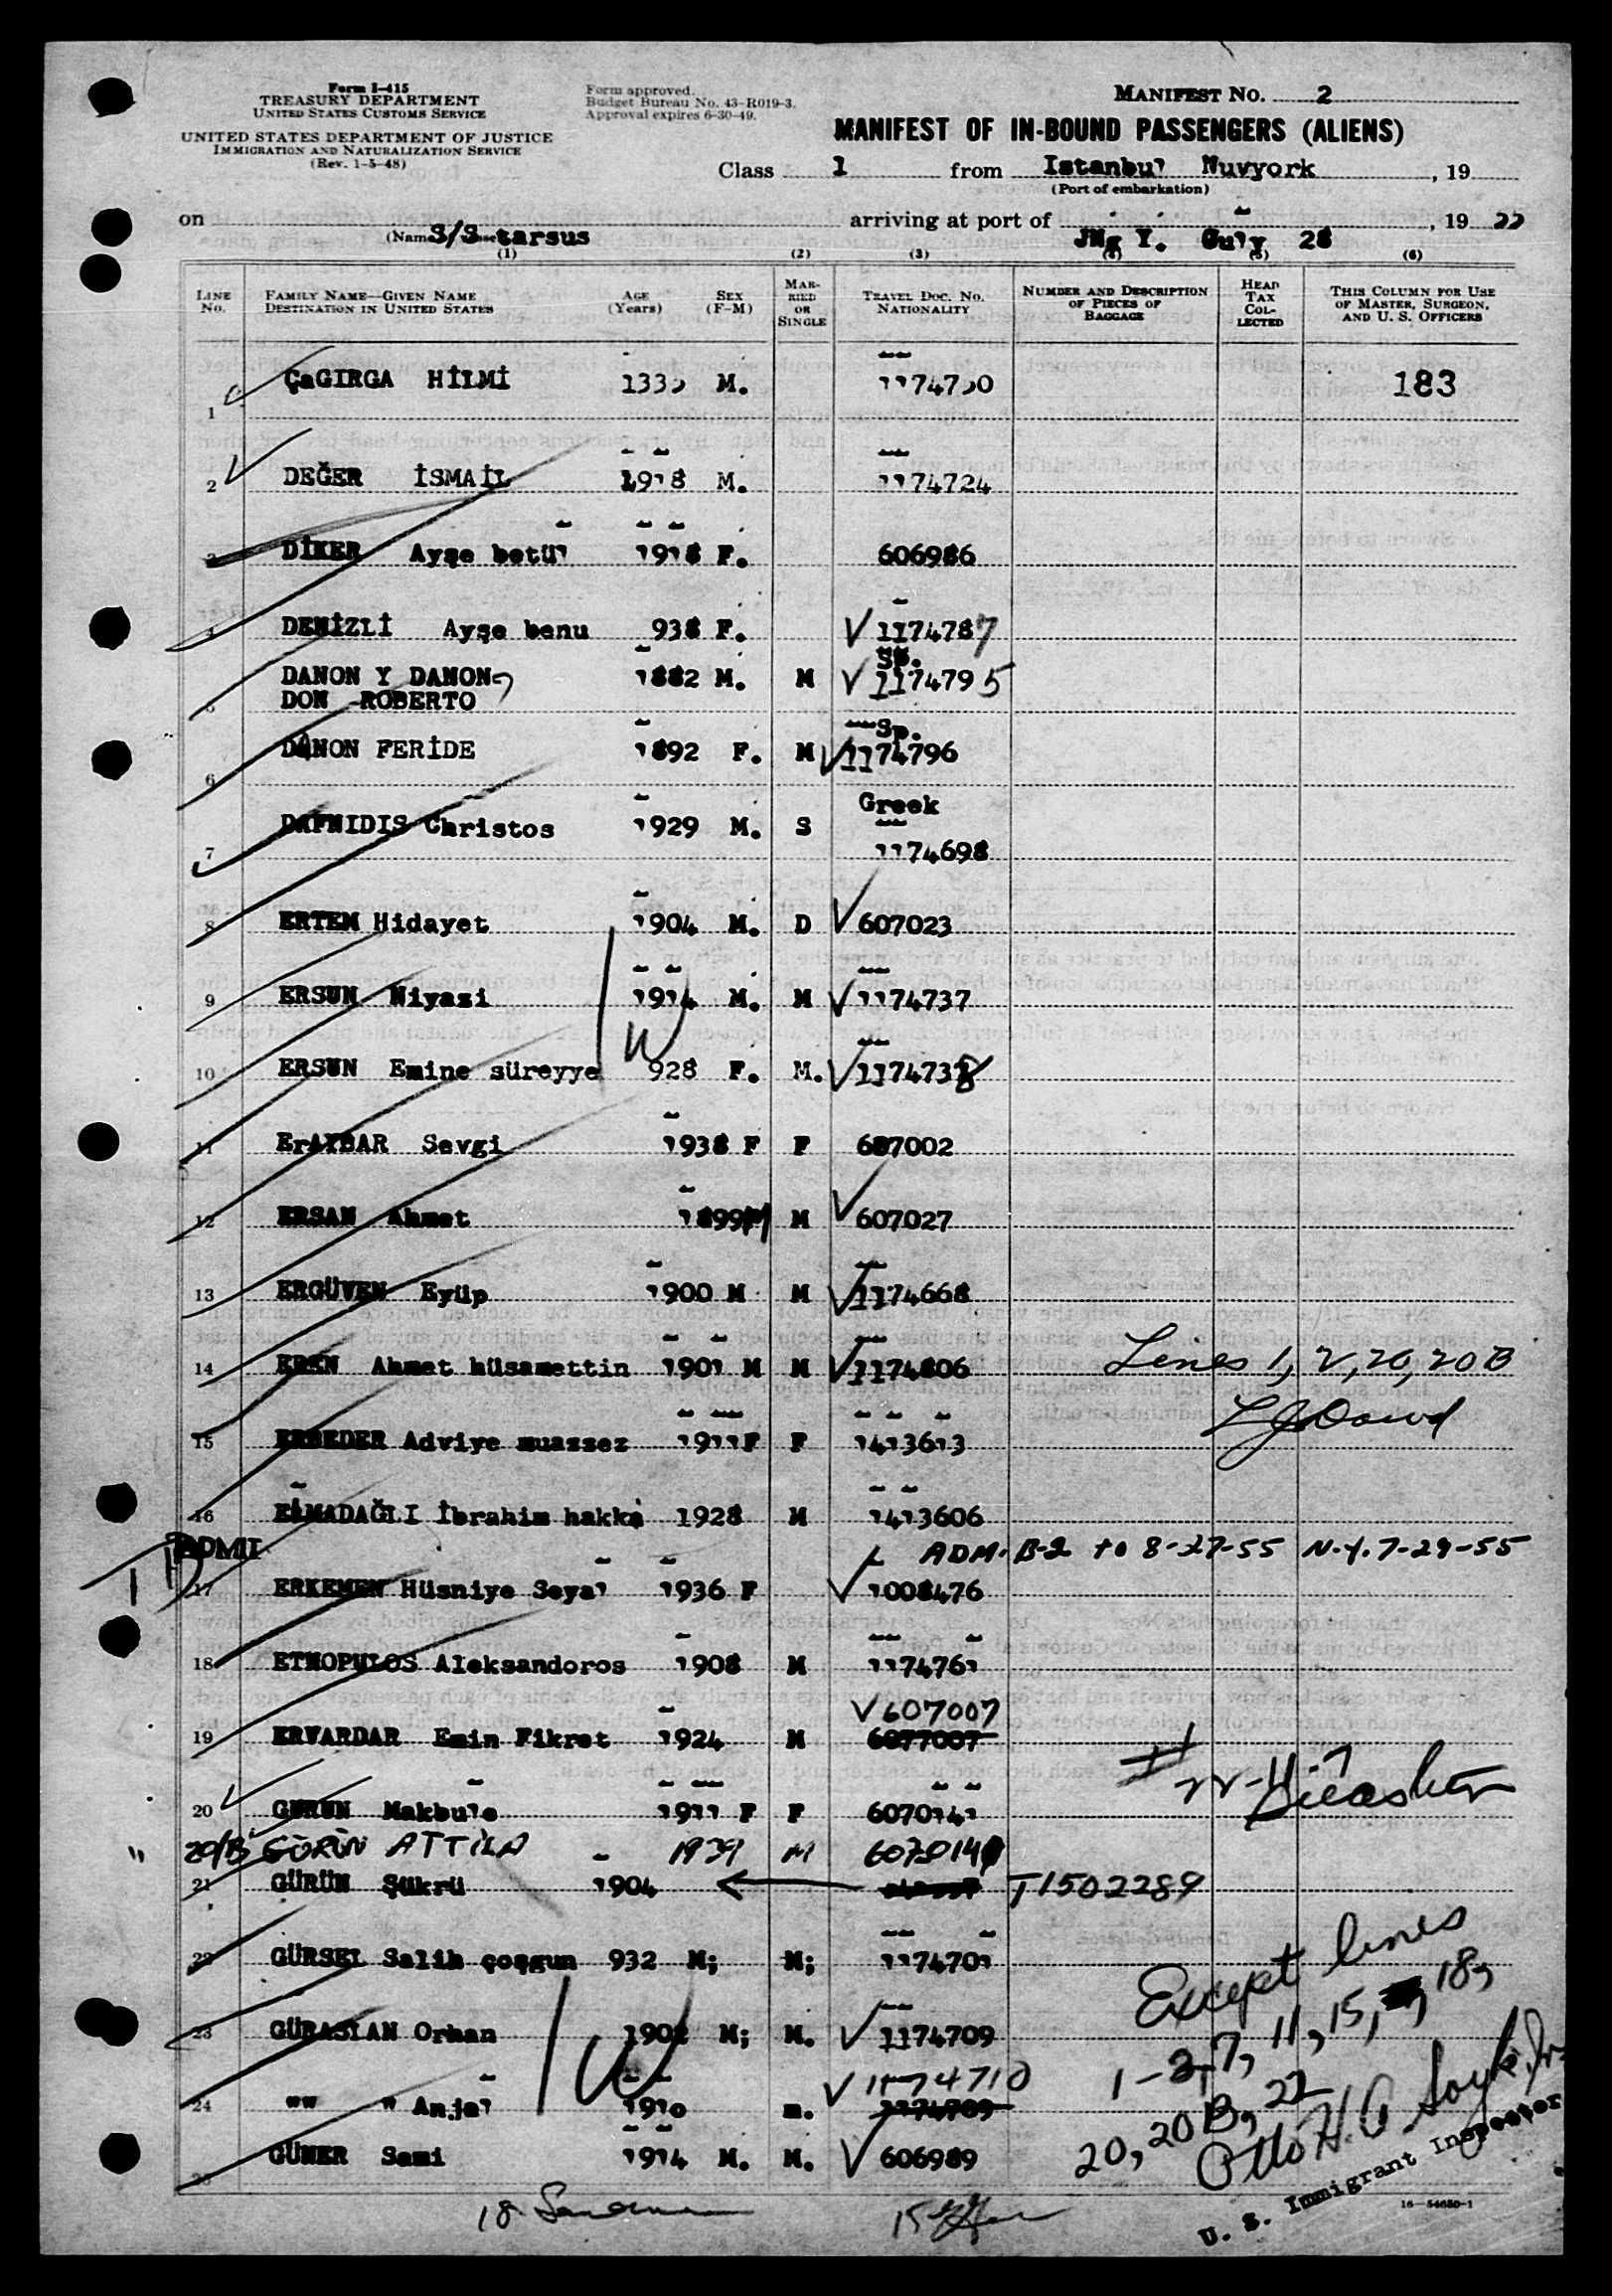 Form I-415
TREASURY DEPARTMENT
UNITED STATES CUSTOMS SERVICE
UNITED STATES DEPARTMENT OF JUSTICE
IMMIGRATION AND NATURALIZATION SERVICE
(Rev. 1-5-48)
Form approved.
Budget Bureau No. 43-R019-3.
Approval expires 6-30-49.
MANIFEST NO. 2
MANIFEST OF IN-BOUND PASSENGERS (ALIENS)
Class 1 from Istanbul Nuvyork, 19
(Port of embarkation)
on S/S tarsus arriving at port of Y. 28, 19
(1) (2) (3) (4) (5) (6)
LINE No. FAMILY NAME—GIVEN NAME DESTINATION IN UNITED STATES AGE (Years) SEX (F-M) MARRIED OR SINGLE TRAVEL DOC. NO. NATIONALITY NUMBER AND DESCRIPTION OF PIECES OF BAGGAGE HEAD TAX COLLECTED THIS COLUMN FOR USE OF MASTER, SURGEON, AND U. S. OFFICERS
1 ÇaGIRGA HİLMİ M. 183
2 DEĞER İSMAİL 1918 M. 1174724
3 DİKER Ayşe betül 1918 F. 606986
4 DENİZLİ Ayşe benu 938 F. 1174787
5 DANON Y DANON DON ROBERTO 1882 M. M Sp. 1174795
6 DANON FERİDE 1892 F. M Sp. 1174796
7 DAFNIDIS Christos 1929 M. S Greek 1174698
8 ERTEM Hidayet 1904 M. D 607023
9 ERSUN Niyazi 1914 M. M 1174737
10 ERSUN Emine süreyye 928 F. M. 1174738
11 ErAYBAR Sevgi 1938 F F 607002
12 ERSAN Ahmet 1899 M M 607027
13 ERGÜVEN Eyüp 1900 M M 1174668
14 EREN Ahmet hüsamettin 1901 M M 1174806 Lines 1, 2, 20, 20B
15 ERBEDER Adviye muazzez 1911 F F 1413613
16 ELMADAĞLI İbrahim hakkı 1928 M 1413606
ADMIT ADM. B-2 to 8-27-55 N.Y. 7-29-55
17 ERKEMEN Hüsniye Seyal 1936 F 1008476
18 ETNOPULOS Aleksandoros 1908 M 1174761
607007
19 ERVARDAR Emin Fikret 1924 M 6077007
20 GÜRÜN Makbule 1911 F F 6070141
20/B GÜRÜN ATTİLA 1939 M
21 GÜRÜN Şükrü 1904 T1502289
22 GÜRSEL Salih çoşgun 932 M; M; 1174701
Except lines
23 GÜRASLAN Orhan 1902 M; M. 1174709
1-2, 7, 11, 15, 18,
1174710
24 "" " Anjel 1910 m. 1174709
20, 20B, 22
25 GÜNER Sami 1914 M. M. 606989
Otto H.
U. S. Immigrant Inspector
18
15
16—54650-1